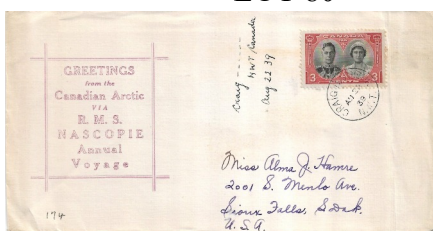 GREETINGS
from the
Canadian Arctic
VIA
R. M. S.
NASCOPIE
Annual
Voyage
Craig
NWT, Canada
Aug 22 39
CANADA
3 CENTS 3
CRAIG
39
Miss Alma J. Hamre
2001 S. Menlo Ave.
Sioux Falls, S Dak.
U. S. A.
174